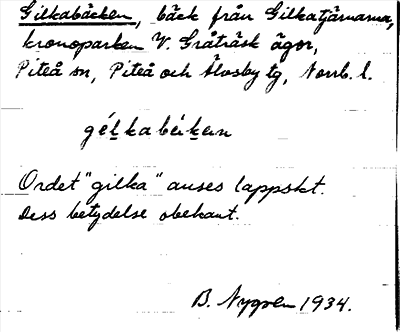 Gilkabäcken, bäck från Gilkatjärnarna,
kronoparken V. Gråträsk ägor,
Piteå sn, Piteå och Älvsby tg, Norrb. l.
gélkabékɛn
Ordet "gilka" anses lappskt.
Dess betydelse obekant.
B. Nygren 1934.